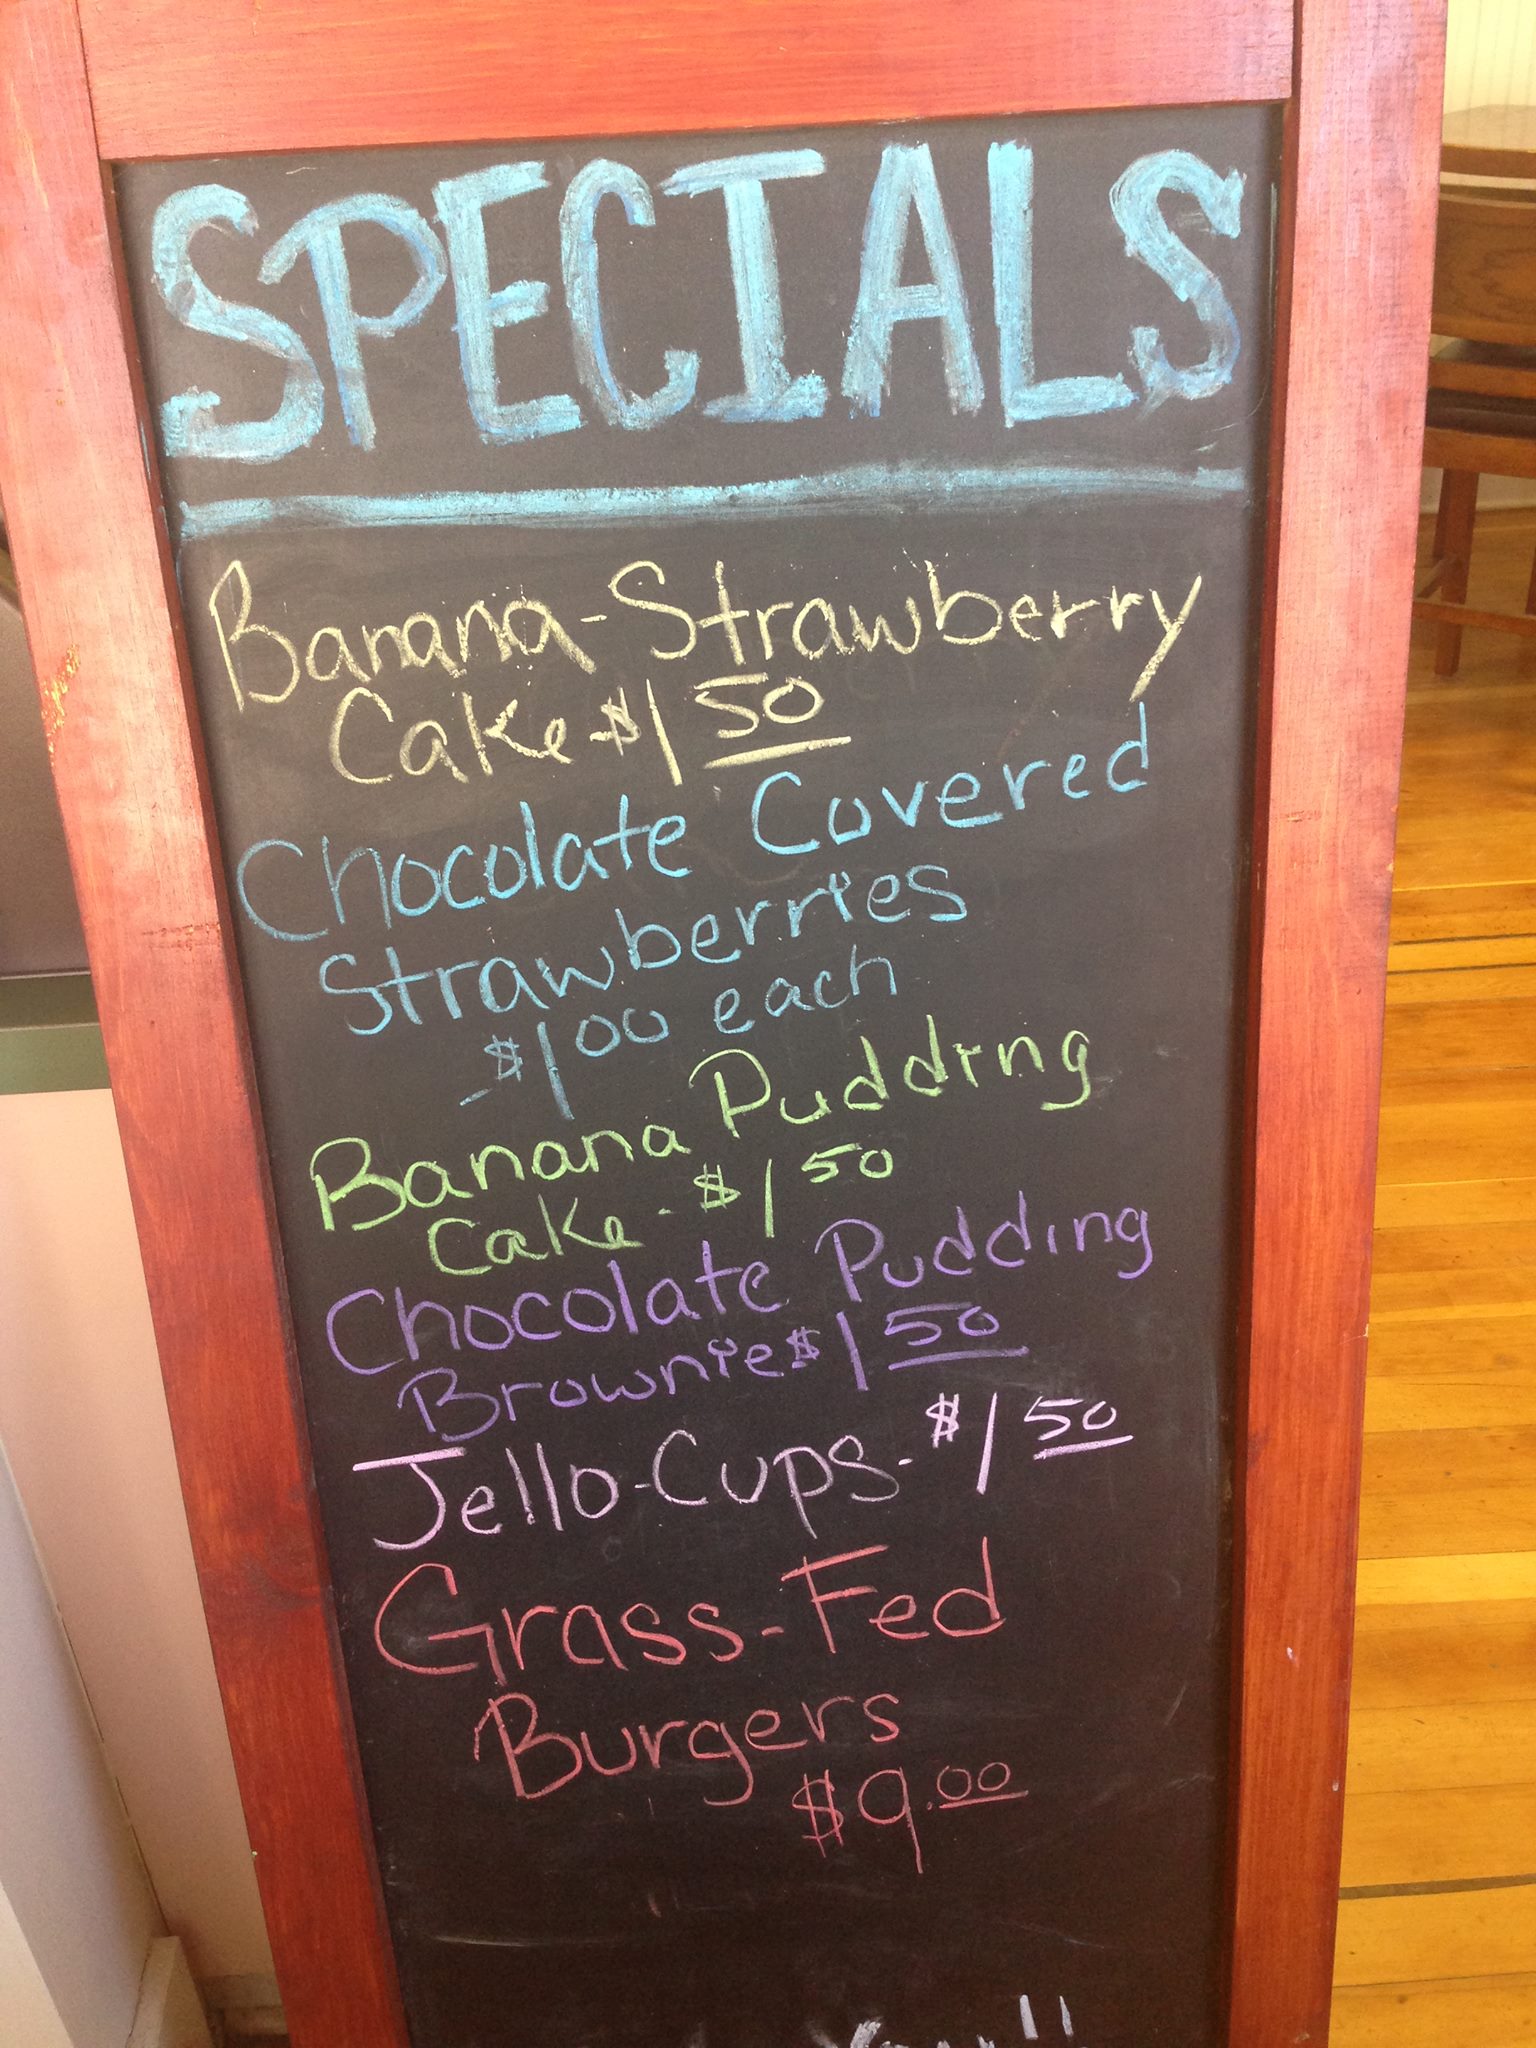 SPECIALS
Banana-Strawberry
Cake-$1 50
Chocolate Covered
Strawberries
-$1 00 each
Banana Pudding
Cake-$1 50
Chocolate Pudding
Brownie$1 50
Jello-Cups-$1 50
Grass-Fed
Burgers
$9.00